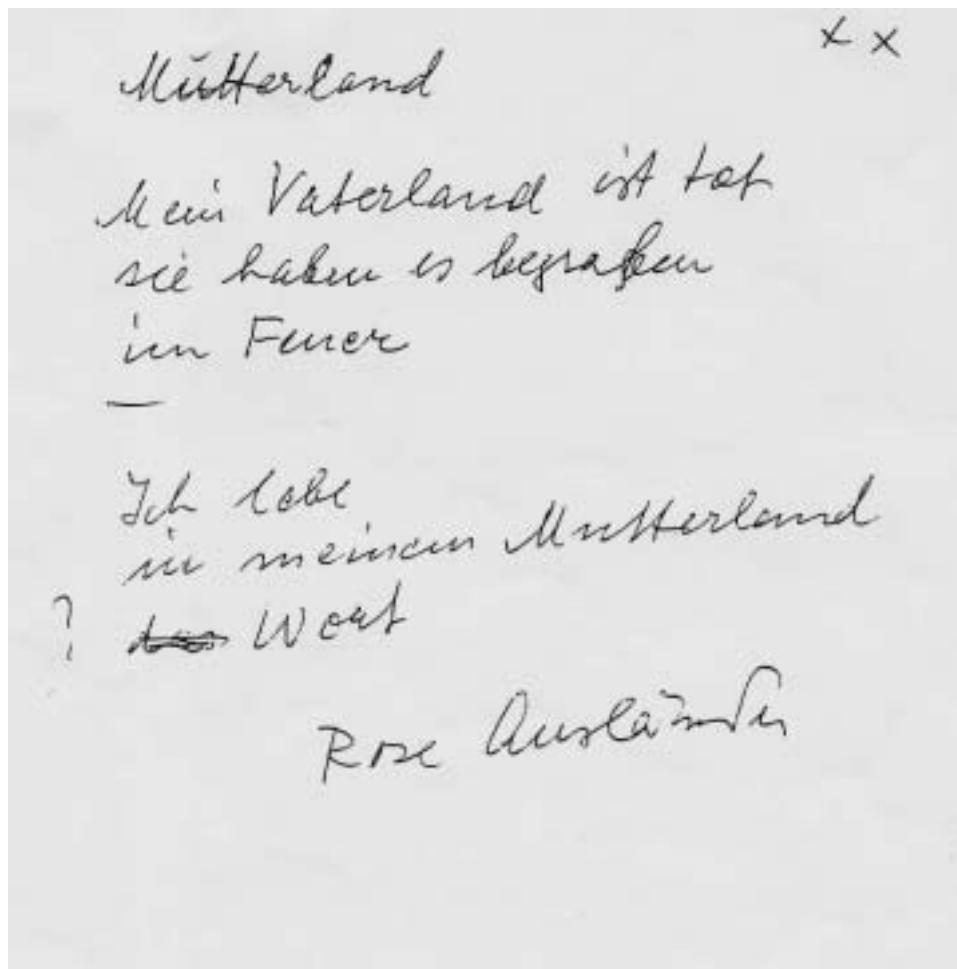 x x
Mutterland
Mein Vaterland ist tot
sie haben es begraben
im Feuer
—
Ich lebe
in meinem Mutterland
? das Wort
Rose Ausländer